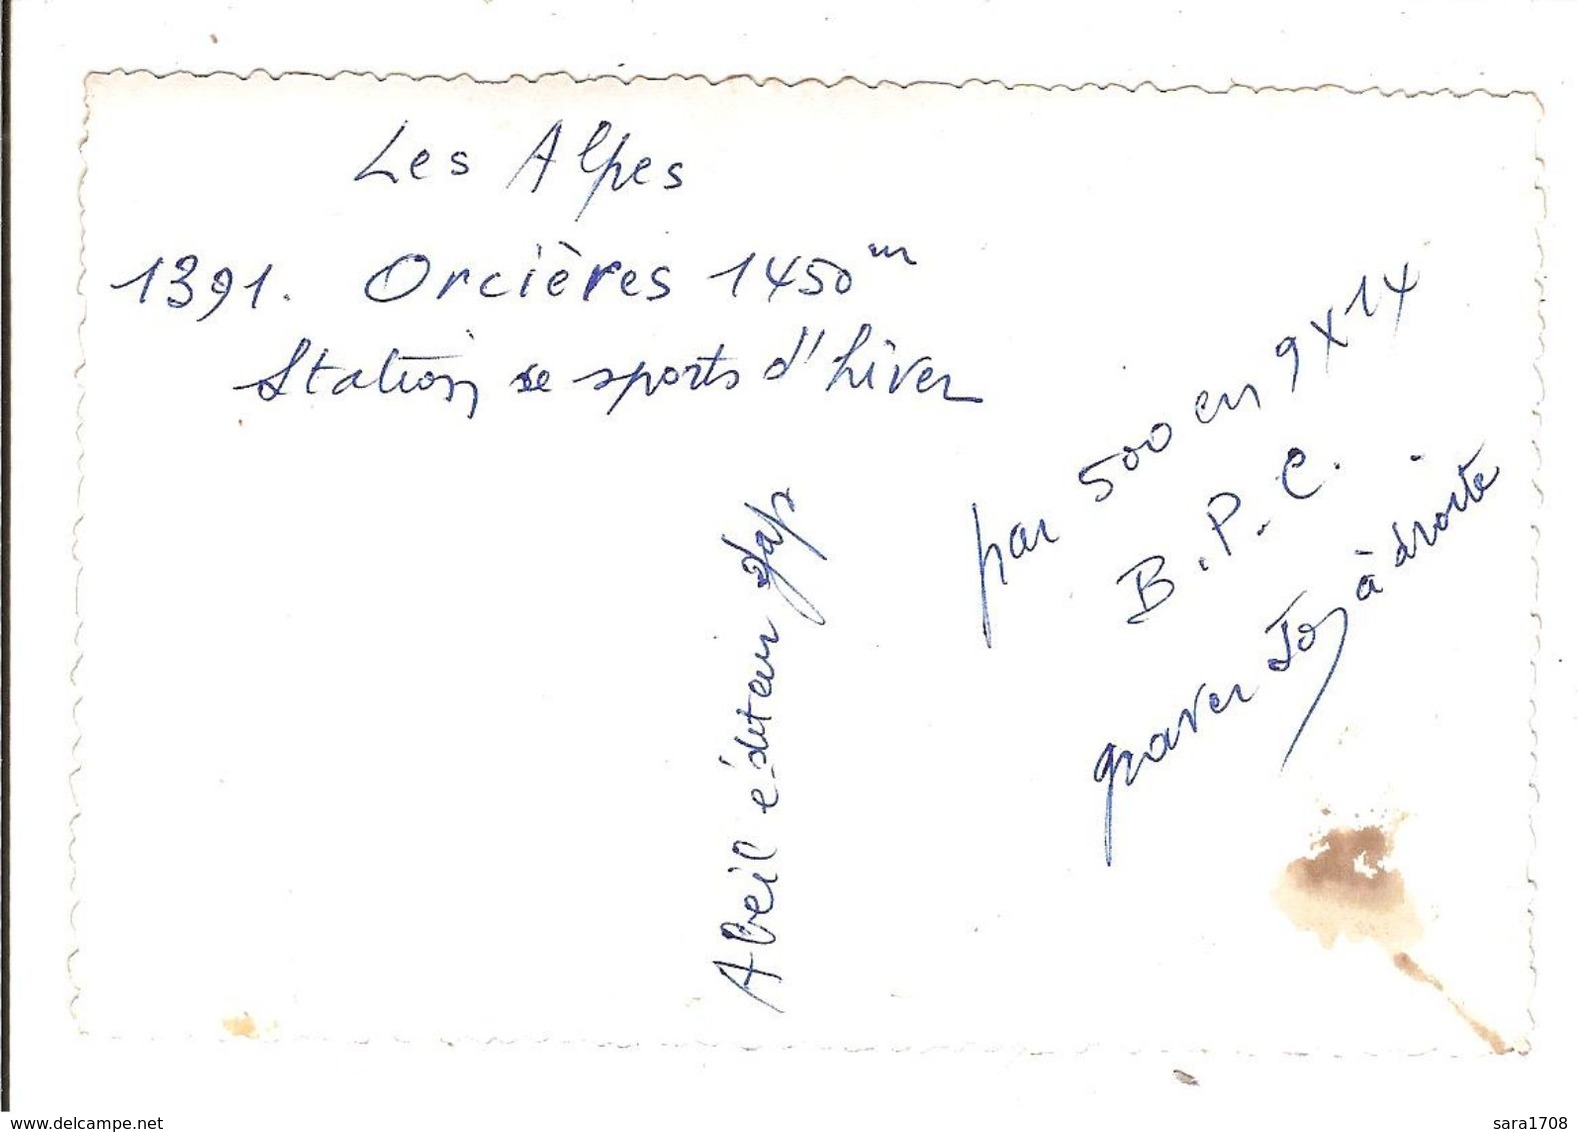 Les Alpes
1391. Orcières 1450m
Station de sports d'hiver
par 500 en 9x14
B.P.C.
graver Jos à droite
Abeil éditeur Gap
www.delcampe.net
sara1708